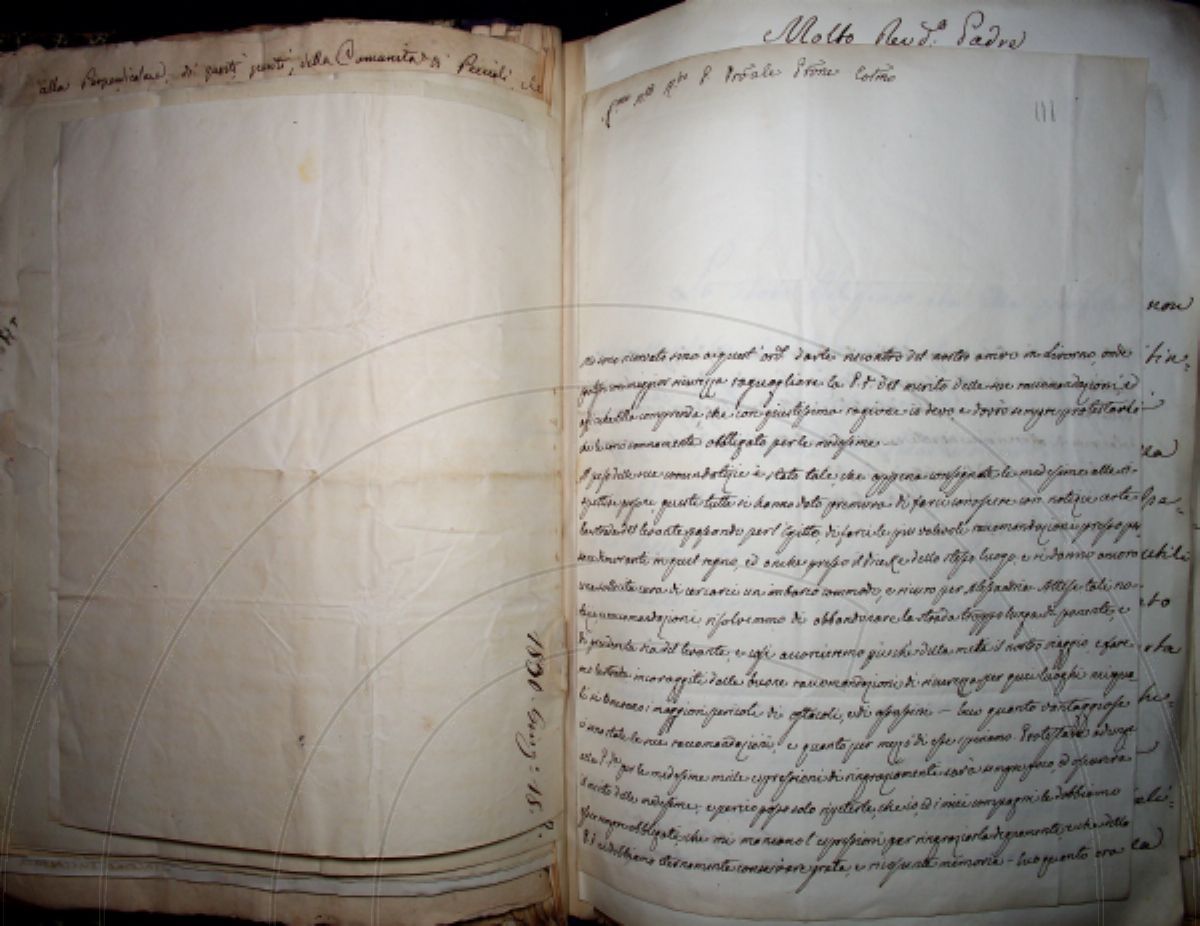 alla Perpendicolare, di questi, della Comunità di Peccioli, che
1821 15
Molto Rev.d Padre
P. Prõale Prõne Colmo
111
sino a quest' ord.º darle riscontro del nostro arrivo in Livorno, onde
maggior sicurezza raguagliare la P. V. del merito delle sue raccomandazioni, e
comprenda che con giustissima ragione io devo e dovrò sempre protestarle
sommamente obbligato per le medesime
Il peso delle sue comendatizie è stato tale, che appena consegnate le medesime alle ri-
spettive persone, queste tutte si hanno dato premura di farci conoscere con notizie certe
la strada del levante passando per l'Egitto, di farci le più valevoli raccomandazioni presso per
sone dimorante in quel regno, ed anche presso il Vice Re dello stesso luogo, e si danno ancora
una sollecita cura di cercarci un imbarco commodo, e sicuro per Alessandria. Attese tali no-
tizie, e raccomandazioni risolvemmo di abbandonare la strada troppo lunga di ponente, e
di prendere via del levante, e così accorcieremo più che della metà il nostro viaggio, e fare
mo la strada incoraggiti dalle buone raccomandazioni di sicurezza per quei luoghi nei qua
li si trovano i maggiori pericoli di ostacoli, e di assassini – Ecco quanto vantaggiose
ci sono state le sue raccomandazioni, e quanto per mezzo di esse speriamo. Protestarle adunque
alla P. V. per le medesime mille espressioni di ringraziamenti sarà sempre poco, ed oscurerà
il merito delle medesime, e perciò posso solo ripeterle, che io, ed i miei compagni le dobbiamo
esser sempre obbligati, che mi mancano l'espressioni per ringraziarla degnamente, e che della
P. V. dobbiamo eternamente conservare grata, e rispettosa memoria – Ecco quanto ora
non
tin-
la
spa-
ebili
eto
rta
he-
la